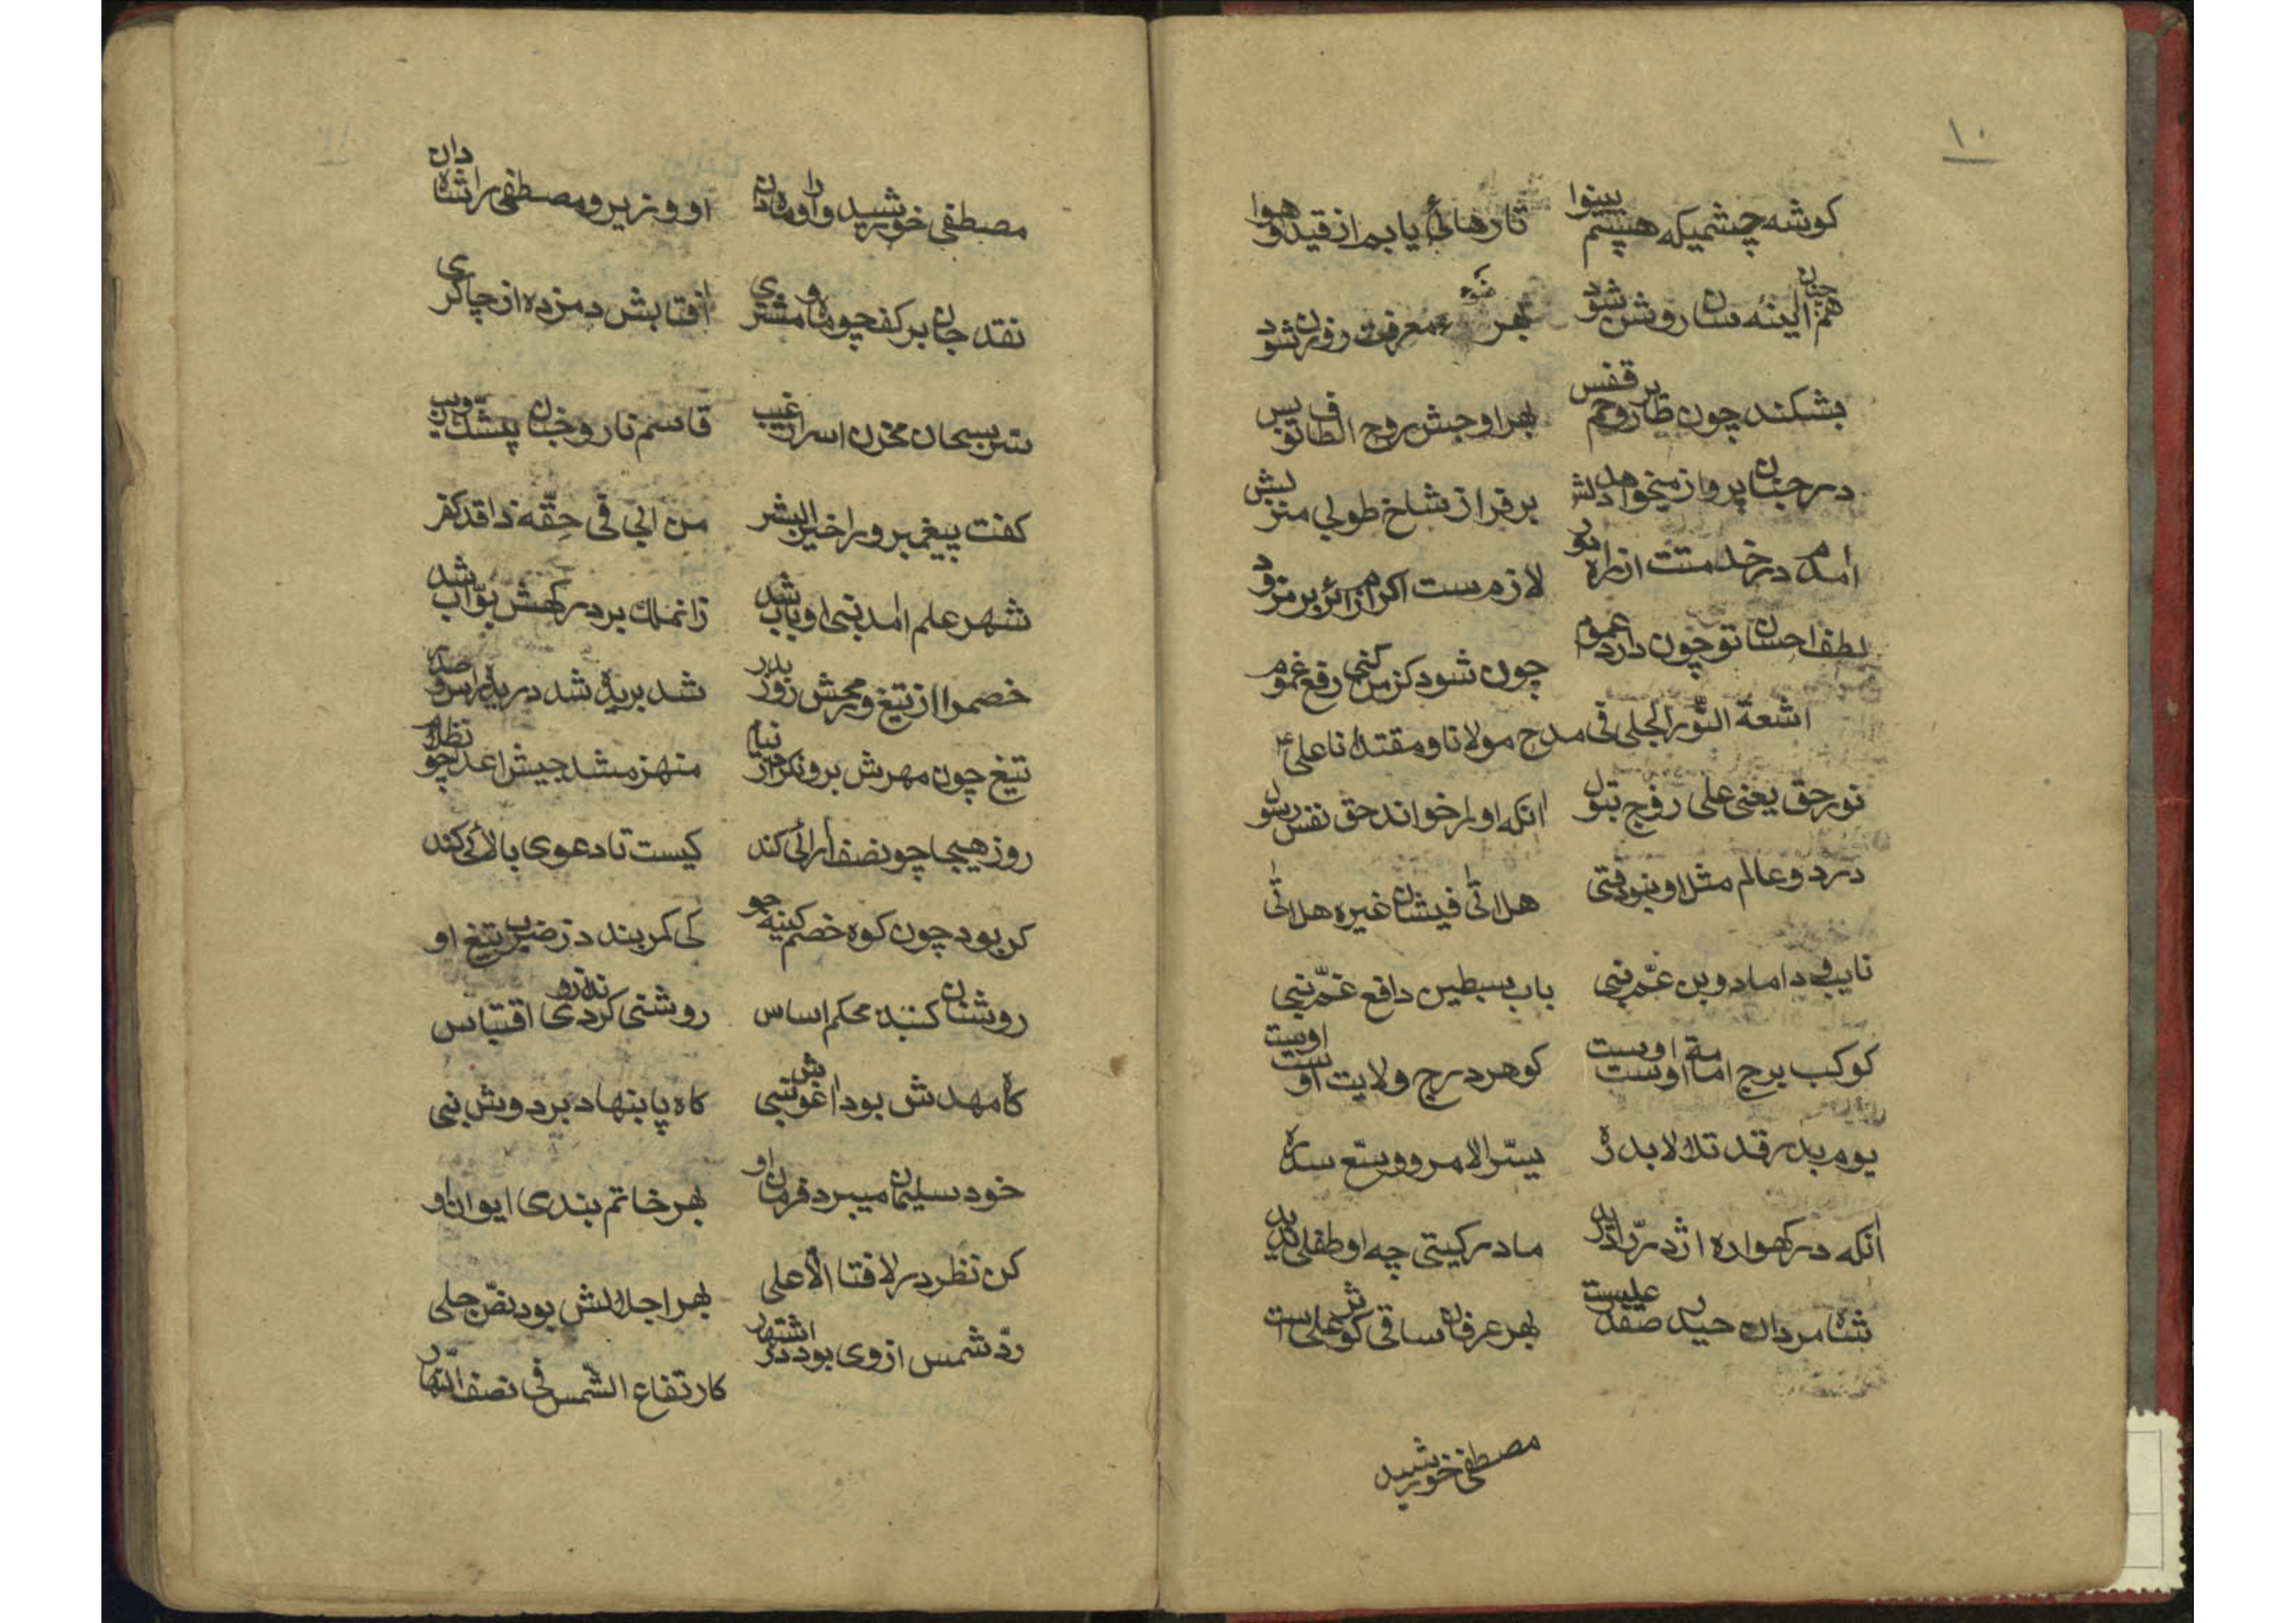 ۱۰
کوشه چشمیکه هستم بینوا تا رهائی یابم از قید و هوا
هم جنان ایینه سان روشن شود بهر ضوء معرفت روزن شود
بشکند چون طایر روحم قفس بهر اوجش روح الطاف تو بس
در جنان پرواز میخواهد دلش بر فراز شاخ طوبی منزلش
امدم در خدمتت از راه دور لازمست اکرام زائر بر مزور
لطف احسان تو چون دارد عموم چون شود کز من کنی رفع غموم
اشعة النّور الجلی فی مدح مولانا و مقتدانا علی ع
نور حق یعنی علی زوج بتول انکه او را خواند حق نفس رسول
در دو عالم مثل او نبود فتی هل اتی فیشان غیره هل اتی
نایب و داماد و بن عمّ نبی باب سبطین دافع غمّ نبی
کوکب برج امامة اوست اوست کوهر درج ولایت اوست اوست
یوم بدر قد تلالا بدره یسّر الامر و وسّع سدره
انکه در کهواره اژدر را درید مادر کیتی چه او طفلی ندید
شاه مردان حیدر صفدر علیست بهر عرفان ساقی کوثر علی است
مصطفی خورشید
مصطفی خورشید و او را ماه دان او وزیر و مصطفی را شاه دان
نقد جان بر کف چو ماه و مشتری افتابش دم زده از چاکری
سرّ سبحان مخزن اسرار غیب قاسم نار و جنان بیشکّ و ریب
کفت پیغمبر ورا خیر البشر من ابی فی حقّه ذا قد کفر
شهر علم امد نبی او باب شد زانملک بر درکهش بوّاب شد
خصم را از تیغ و رمحش روز بدر شد بریده شد دریده راس و صدر
تیغ چون مهرش برون کرد از نیام منهزم شد جیش اعدا چو نظلام
روز هیجا چونصف ارائی کند کیست تا دعوی بالائی کند
کر بود چون کوه خصم کینه جو کی کمر بندد ز ضرب تیغ او
روشنان کنبد محکم اساس روشنی کردند از وی اقتباس
کاه مهدش بود اغوش نبی کاه پا بنهاد بر دوش نبی
خود سلیمان میبرد فرمان او بهر خاتم بندی ایوان او
کن نظر در لا فتا الّا علی بهر اجلالش بود نصّ جلی
ردّ شمس از وی بود در اشتهار کارتفاع الشّمس فی نصف النّهار